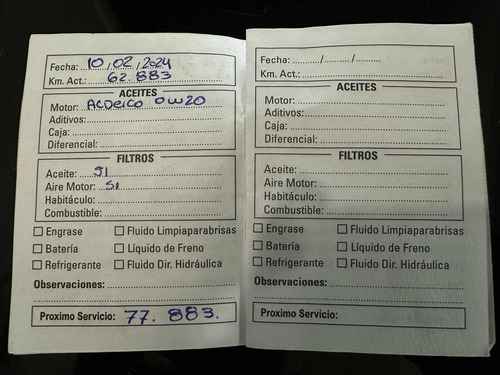 Fecha: 10/02/2024
Km. Act.: 62.883
ACEITES
Motor: ACDelco 0w20
Aditivos:
Caja:
Diferencial:
FILTROS
Aceite: SI
Aire Motor: SI
Habitáculo:
Combustible:
Engrase Fluido Limpiaparabrisas
Batería Líquido de Freno
Refrigerante Fluido Dir. Hidráulica
Observaciones:
Proximo Servicio: 77.883.
Fecha: / /
Km. Act.:
ACEITES
Motor:
Aditivos:
Caja:
Diferencial:
FILTROS
Aceite:
Aire Motor:
Habitáculo:
Combustible:
Engrase Fluido Limpiaparabrisas
Batería Líquido de Freno
Refrigerante Fluido Dir. Hidráulica
Observaciones:
Proximo Servicio: